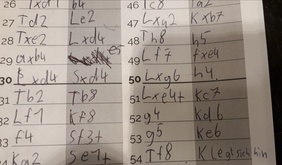 26 Txd1 b4
27 Td2 Le2
28 Txe2 Lxd4
29 axb4 e5
30 Bxd4 Sxd4
31 Tb2 Tb8
32 Lf1 Kf8
33 f4 Sf3+
34 Kg2 Se1+
46 Tc8 Ta2
47 Lxg2 Kxb7
48 Th8 h5
49 Lf7 fxe4
50 Lxg6 h4
51 Lxe4+ Kc7
52 g4 Kd6
53 g5 Ke6
54 Tf8 K legt sich hin